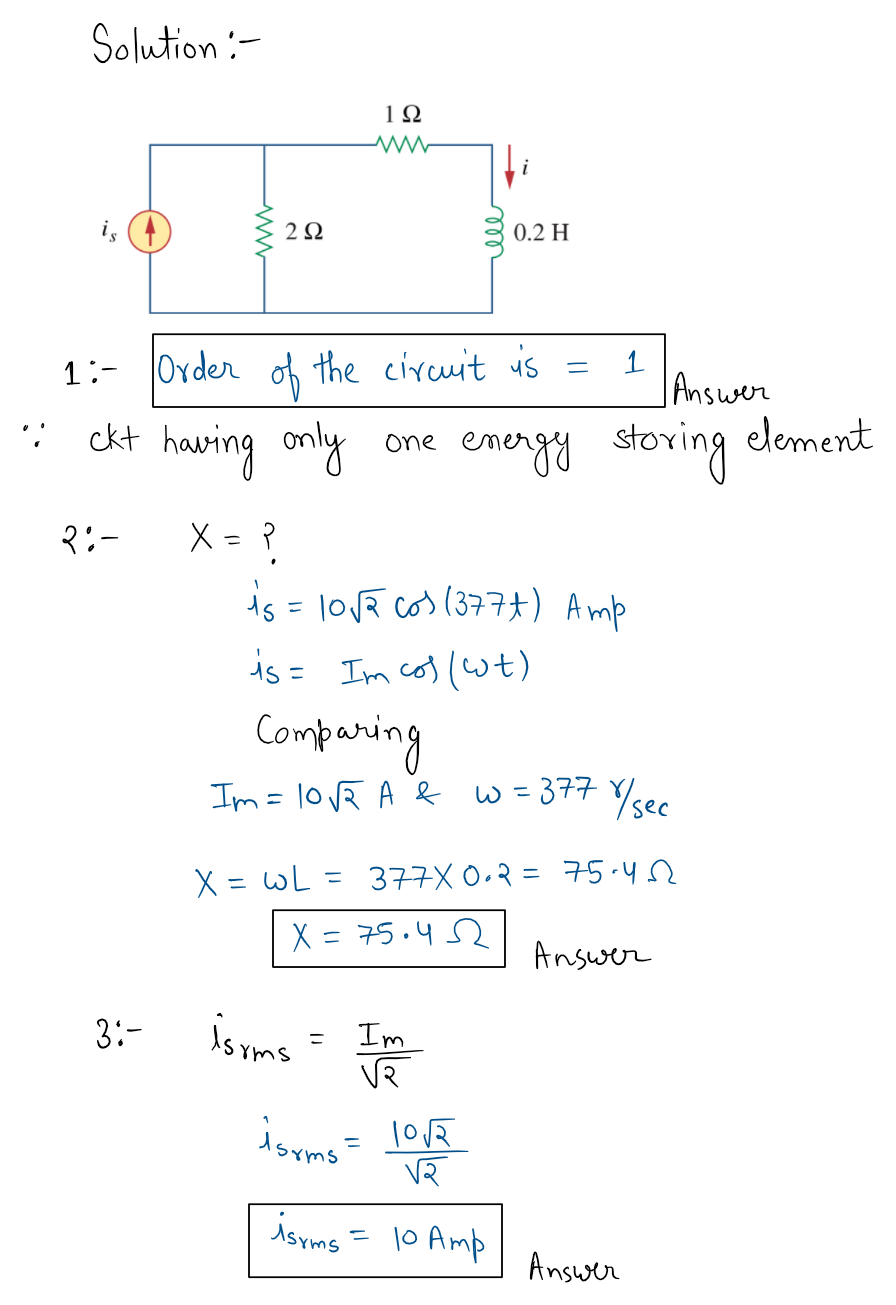 Solution :-
1 Ω
i
i_s
2 Ω
0.2 H
1:- Order of the circuit is = 1 Answer
∵ ckt having only one energy storing element
2:- X = ?
is = 10√2 cos(377t) Amp
is = Im cos(ωt)
Comparing
Im = 10√2 A & ω = 377 r/sec
X = ωL = 377X0.2 = 75.4 Ω
X = 75.4 Ω Answer
3:- isrms = Im/√2
isrms = 10√2/√2
isrms = 10 Amp Answer